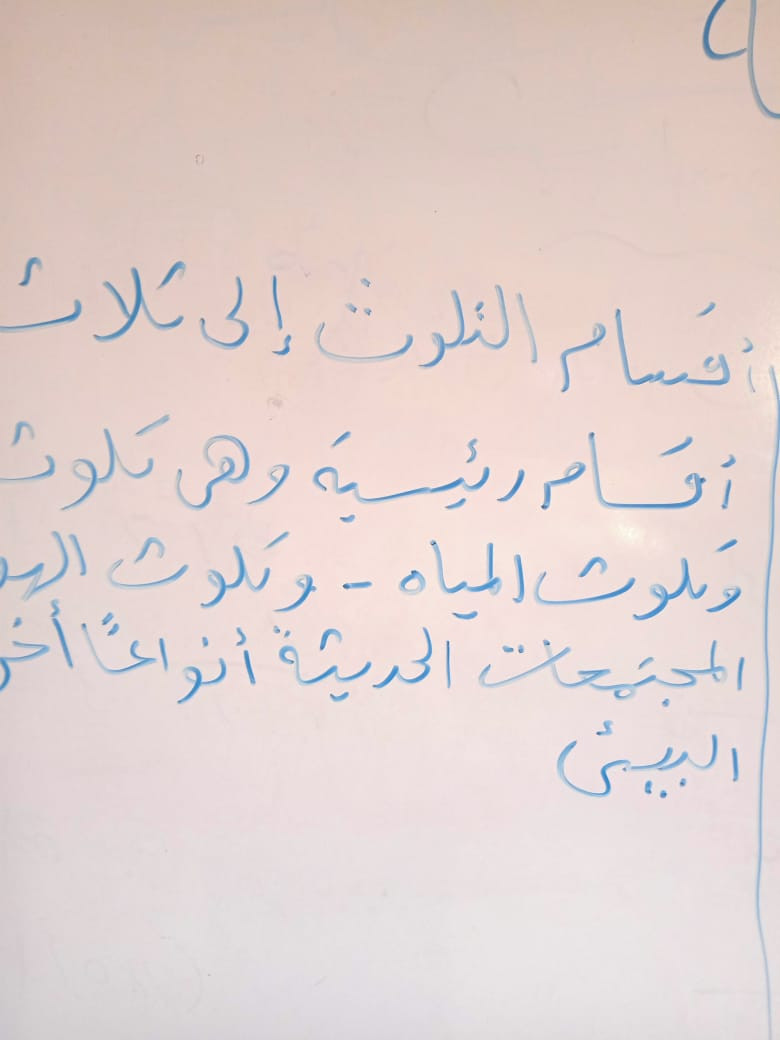 أقسام التلوث إلى ثلاث
أقسام رئيسية وهى تلوث
وتلوث المياه - وتلوث الهو
المجتمعات الحديثة أنواعًا أخر
البيئى